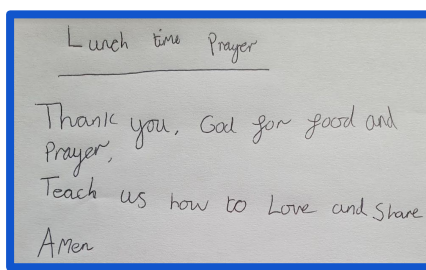 Lunch time Prayer
Thank you, God for food and
Prayer,
Teach us how to Love and Share
Amen